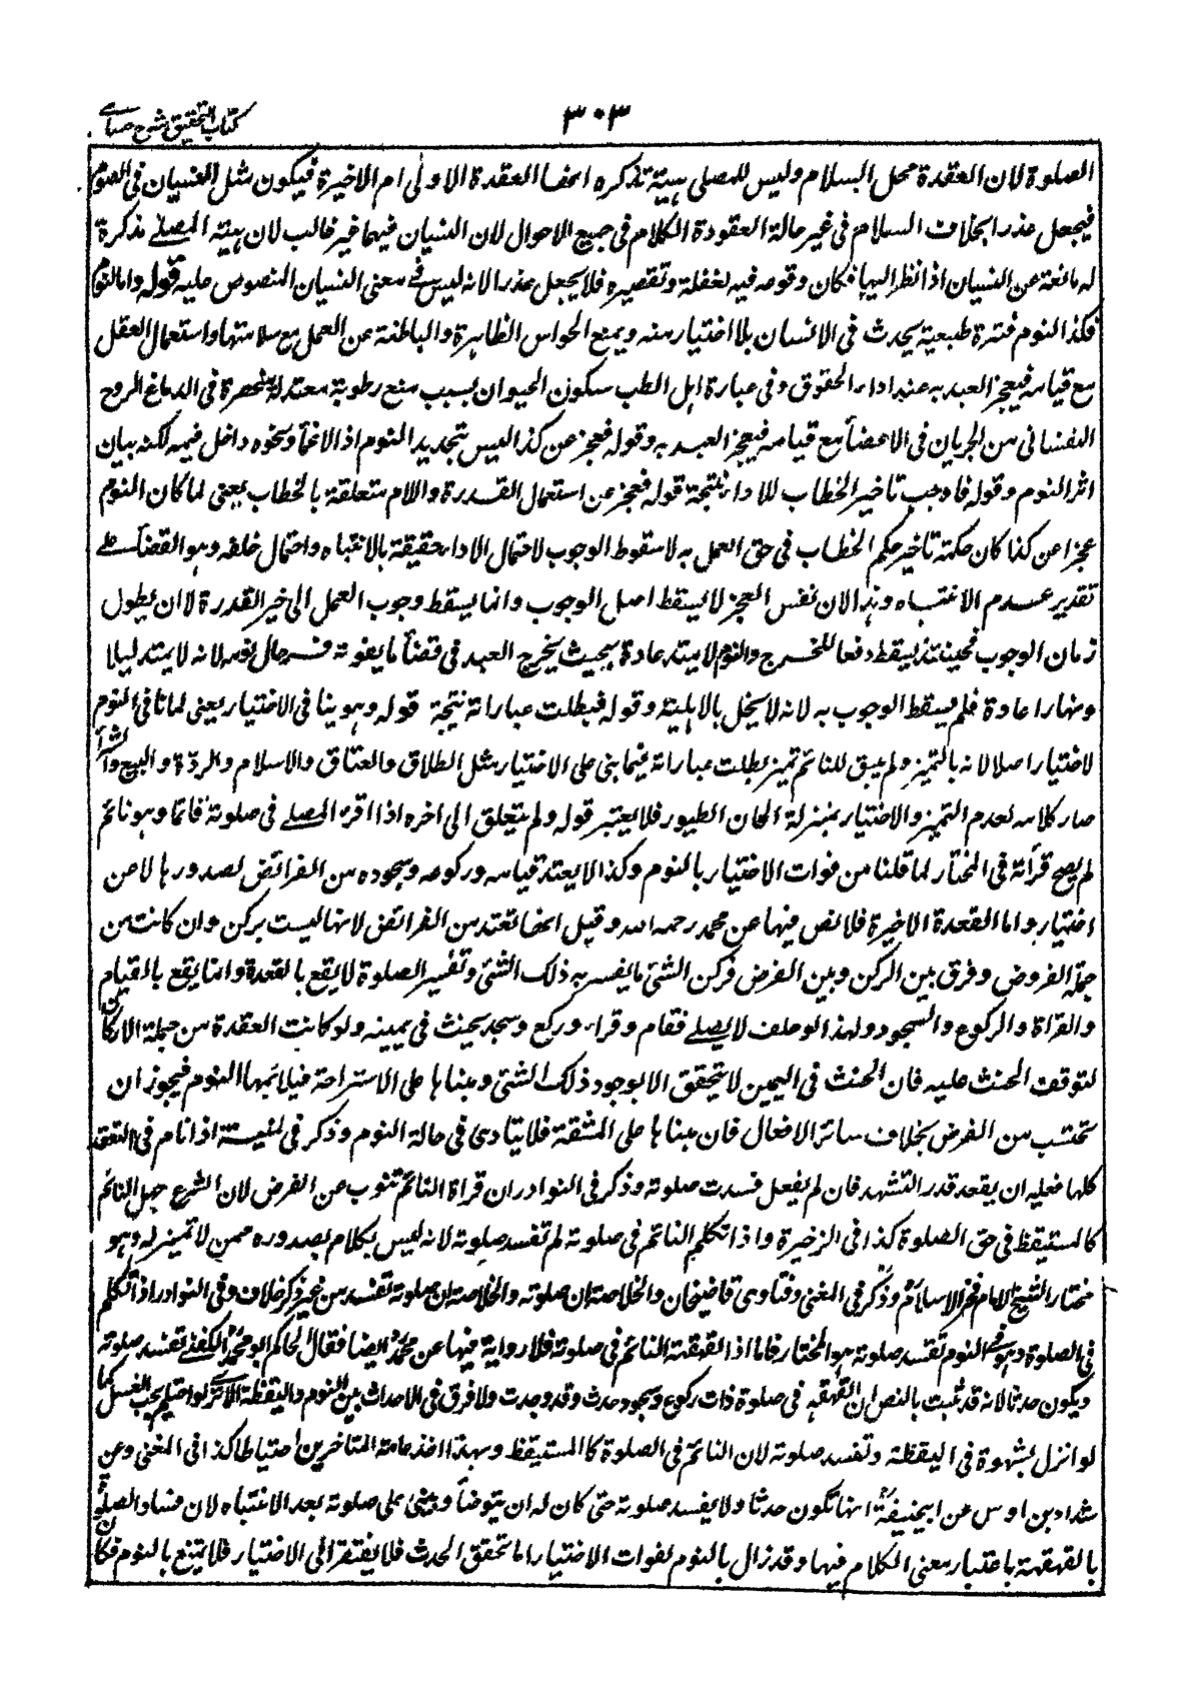 ٣٠٣
كتاب التحقيق شرح حسامى
الصلوة لان العقدة محل السلام وليس للمصلى هيئة تذكره انها العقدة الاولى ام الاخيرة فيكون مثل النسيان فى الصوم
فيجعل عذرا بخلاف السلام فى غير حالة العقودة الكلام فى جميع الاحوال لان النسيان فيها غير غالب لان هيئة المصلے مذكرة
له مانعة عن النسيان اذا نظر اليها فكان وقوعه فيه لغفلة وتقصيره فلا يجعل عذرا لانه ليس فے معنى النسيان المنصوص عليه قوله واما النوم
فكذا النوم فترة طبيعية يحدث فى الانسان بلا اختيار منه ويمنع الحواس الظاهرة والباطنة عن العمل مع سلامتها واستعمال العقل
مع قيامه فيعجز العبد به عند اداء الحقوق وفى عبارة اهل الطب سكون الحيوان بسبب منع رطوبة معتدلة منحصرة فى الدماغ الروح
النفسانى من الجريان فى الاعضاء مع قيامه فيعجز العبد به وقوله فعجز عن كذا ليس بتحديد النوم اذ الاغماء ونحوه داخل فيه لكنه بيان
اثر النوم وقوله فاوجب تاخير الخطاب للاداء نتيجة قوله فعجز عن استعمال القدرة واللام متعلقة بالخطاب يعنى لما كان النوم
عجزا عن كذا كان حكمة تاخير حكم الخطاب فى حق العمل به لا سقوط الوجوب لاحتمال الاداء حقيقة بالانتباه واحتمال خلفه وهو القضاء على
تقدير عدم الانتباه وهذا لان نفس العجز لا يسقط اصل الوجوب وانما يسقط وجوب العمل الى حين القدرة لا ان يطول
زمان الوجوب فحينئذ يسقط دفعا للحرج والنوم لا يمتد عادة بحيث يخرج العبد فى قضاء ما يفوته فے حال نومه لانه لا يمتد ليلا
ونهارا عادة فلم يسقط الوجوب به لانه لا يخل بالاهلية وقوله فبطلت عباراته نتيجة قوله وهو ينافى الاختيار يعنى لما نافى النوم
لاختيار اصلا لانه بالتميز ولم يبق للنائم تميز بطلت عباراته فيما بنى على الاختيار مثل الطلاق والعتاق والاسلام والردة والبيع والشراء
صار كلامه لعدم التميز والاختيار بمنزلة الحان الطيور فلا يعتبر قوله ولم يتعلق الى اخره اذا اقره المصلے فى صلوته قائما وهو نائم
لم يصح قراته فى المختار لما قلنا من فوات الاختيار بالنوم وكذا لا يعتد قيامه وركوعه وسجوده من الفرائض لصدورها لا عن
اختيار واما القعدة الاخيرة فلا نص فيها عن محمد رحمه الله وقيل انها تعتد من الفرائض لانها ليست بركن وان كانت من
جملة الفروض وفرق بين الركن وبين الفرض فركن الشئ ما يفسر به ذلك الشئ وتفسير الصلوة لا يقع بالقعدة وانما يقع بالقيام
والقراة والركوع والسجود ولهذا لو حلف لا يصلے فقام وقراء وركع وسجد يحنث فى يمينه ولو كانت العقدة من جملة الاركان
لتوقف الحنث عليه فان الحنث فى اليمين لا يتحقق الا بوجود ذلك الشئ ومبناها على الاستراحة فيلائمها النوم فيجوز ان
تحتسب من الفرض بخلاف سائر الافعال فان مبناها على المشقة فلا يتادى فى حالة النوم وذكر فى المنية اذا نام فى القعدة
كلها فعليه ان يقعد قدر التشهد فان لم يفعل فسدت صلوته وذكر فى النوادر ان قراة النائم تنوب عن الفرض لان الشرع جعل النائم
كالمستيقظ فى حق الصلوة كذا فى الزخيرة واذا تكلم النائم فى صلوته لم تفسد صلوته لانه ليس بكلام بصدوره ممن لا تميز له وهو
مختار الشيخ الامام فخر الاسلام وذكر فى المغنى وفتاوى قاضيخان والخلاصة ان صلوته والخلاصة ان صلوته تفسد من غير ذكر خلاف وفى النوادر اذا تكلم
فى الصلوة وهو فے النوم تفسد صلوته هو المختار فاما اذا قهقهة النائم فى صلوته فلا رواية فيها عن محمد ايضا فقال الحاكم ابو محمد الكفنى تفسد صلوته
ويكون حدثا لانه قد ثبت بالنص ان القهقهة فى صلوة ذات ركوع وسجود حدث وقد وجدت ولا فرق فى الاحداث بين النوم واليقظة الا ترى لو احتلم يجب الغسل كما
لو انزل بشهوة فى اليقظة وتفسد صلوته لان النائم فى الصلوة كالمستيقظ وبهذا اخذ عامة المتاخرين احتياطا كذا فى المغنى وعن
شداد بن اوس عن ابيحنيفة انها تكون حدثا ولا يفسد صلوته حتى كان له ان يتوضأ ويبنى على صلوته بعد الانتباه لان فساد الصلوة
بالقهقهة باعتبار معنى الكلام فيها وقد زال بالنوم لفوات الاختيار اما تحقق الحدث فلا يفتقر الى الاختيار فلا يمتنع بالنوم فكان